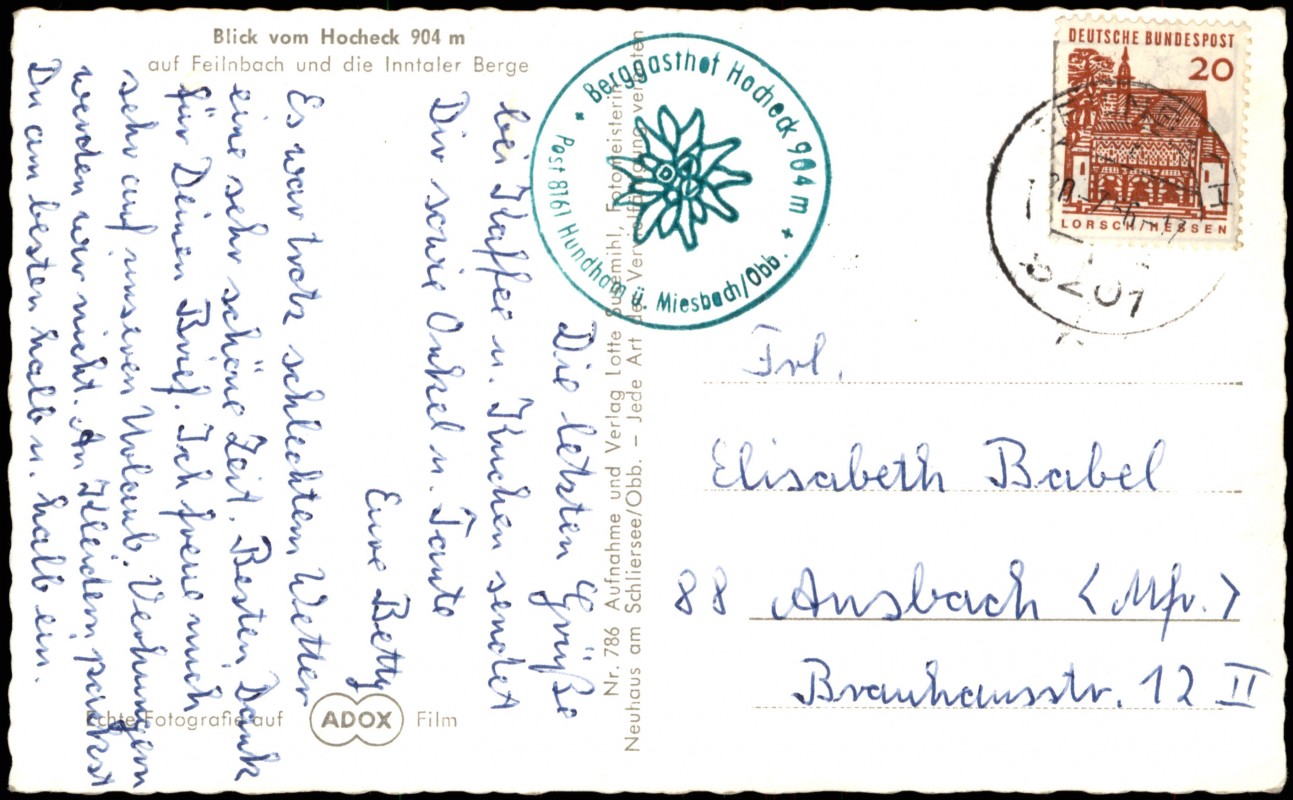 Blick vom Hocheck 904 m
auf Feilnbach und die Inntaler Berge
Die letzten Grüße
bei Kaffee u. Kuchen sendet
Dir sowie Onkel u. Tante
Eure Betty
Es war trotz schlechtem Wetter
eine sehr schöne Zeit. Besten Dank
für Deinen Brief. Ich freue mich
sehr auf unseren Urlaub. Verhungern
werden wir nicht. An Kleidern packst
Du am besten halb u. halb ein.
Echte Fotografie auf ADOX Film
Nr. 786 Aufnahme und Verlag Lotte Fotomeisterin,
Neuhaus am Schliersee/Obb. – Jede Art der Vervielfältigung verboten
Berggasthof Hocheck 904 m
Post 8161 Hundham ü. Miesbach/Obb.
DEUTSCHE BUNDESPOST
20
LORSCH/HESSEN
8201
Frl.
Elisabeth Babel
88 Ansbach <Mfr.>
Brauhausstr. 12 II